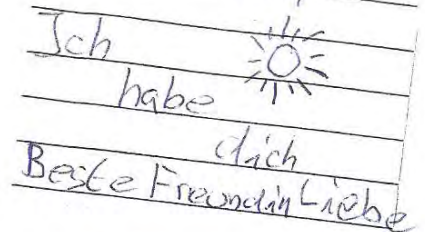 Ich
habe
dich
Beste Freundin Liebe